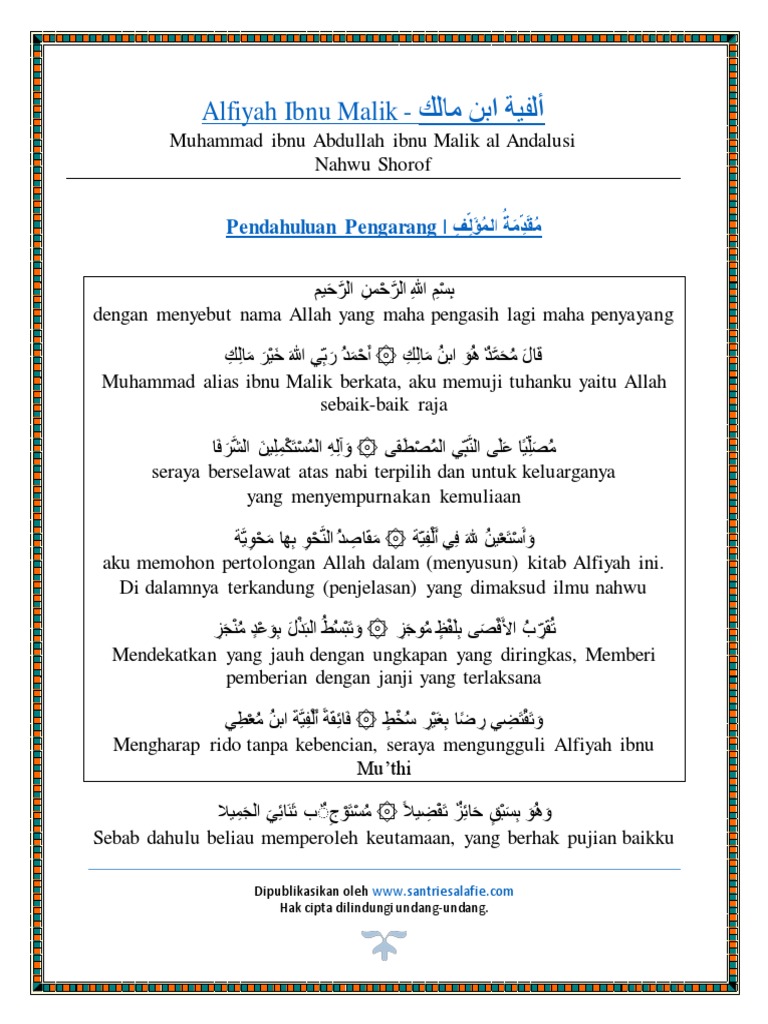 Alfiyah Ibnu Malik - ألفية ابن مالك
Muhammad ibnu Abdullah ibnu Malik al Andalusi
Nahwu Shorof
Pendahuluan Pengarang | مُقَدِّمَةُ المُؤَلِّفِ
بِسْمِ اللهِ الرَّحْمنِ الرَّحَيمِ
dengan menyebut nama Allah yang maha pengasih lagi maha penyayang
قَالَ مُحَمَّدٌ هُوَ ابنُ مَالِكِ ۞ أَحْمَدُ رَبِّي اللهَ خَيْرَ مَالِكِ
Muhammad alias ibnu Malik berkata, aku memuji tuhanku yaitu Allah
sebaik-baik raja
مُصَلِّيًا عَلَى النَّبِيِّ المُصْطَفَى ۞ وَآلِهِ المُسْتَكْمِلِينَ الشَّرَفَا
seraya berselawat atas nabi terpilih dan untuk keluarganya
yang menyempurnakan kemuliaan
وَأَسْتَعْيِنُ للهَ فِي أَلْفِيّةَ ۞ مَقَاصِدُ النَّحْوِ بِهَا مَحْوِيَّةَ
aku memohon pertolongan Allah dalam (menyusun) kitab Alfiyah ini.
Di dalamnya terkandung (penjelasan) yang dimaksud ilmu nahwu
تُقَرِّبُ الأَقْصَى بِلَفْظٍ مُوجَزِ ۞ وَتَبْسُطُ الْبَذْلَ بِوَعْدٍ مُنْجَزِ
Mendekatkan yang jauh dengan ungkapan yang diringkas, Memberi
pemberian dengan janji yang terlaksana
وَتَقْتَضِي رِضًا بِغَيْرِ سُخْطٍ ۞ فَائِقَةً أَلْفِيَّةَ ابنُ مُعْطِي
Mengharap rido tanpa kebencian, seraya mengungguli Alfiyah ibnu
Mu’thi
وَهُوَ بِسَبْقٍ حَائِزٌ تَفْضِيلاً ۞ مُسْتَوْجِبٌ ثَنَائِيَ الْجَمِيلا
Sebab dahulu beliau memperoleh keutamaan, yang berhak pujian baikku
Dipublikasikan oleh www.santriesalafie.com
Hak cipta dilindungi undang-undang.